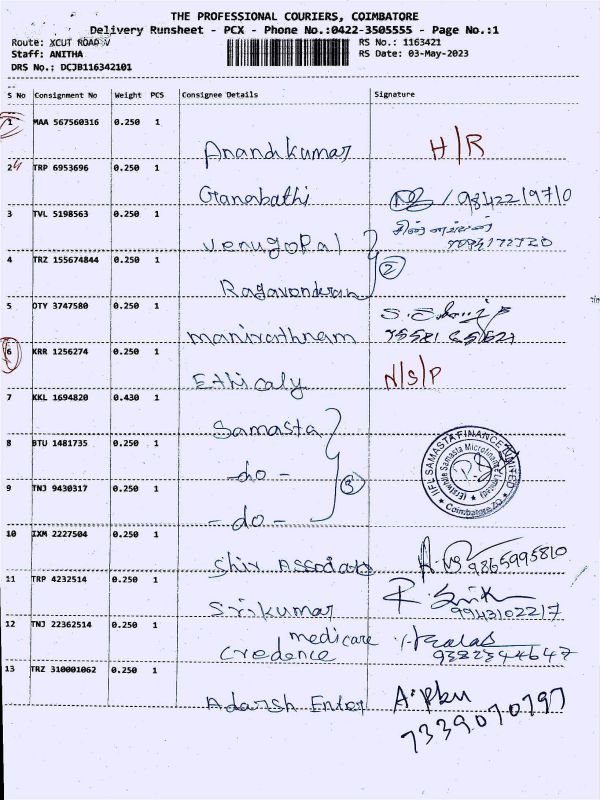 THE PROFESSIONAL COURIERS, COIMBATORE
Delivery Runsheet - PCX - Phone No.:0422-3505555 - Page No.:1
Route: XCUT ROAD V RS No.: 1163421
Staff: ANITHA RS Date: 03-May-2023
DRS No.: DCJB116342101
S No Consignment No Weight PCS Consignee Details Signature
1 MAA 567560316 0.250 1
Anandkumar H/R
2 TRP 6953696 0.250 1
Ganabathi / 9842219710
3 TVL 5198563 0.250 1
Venugopal
4 TRZ 155674844 0.250 1 2
Ragavendran
5 OTY 3747580 0.250 1
manirathnam
6 KRR 1256274 0.250 1
Ethicaly N/S/P
7 KKL 1694820 0.430 1
Samasta
8 BTU 1481735 0.250 1
-do- 3
IIFL SAMASTA FINANCE LIMITED
(Erstwhile Samasta Microfinance Limited)
Coimbatore ZO
9 TNJ 9430317 0.250 1
-do-
10 IXM 2227504 0.250 1
Shiv Associate 9865995810
11 TRP 4232514 0.250 1
Srikumar 9943102217
12 TNJ 22362514 0.250 1
medicare
Credence 9382344647
13 TRZ 310001062 0.250 1
Adarsh Enter
7339070797